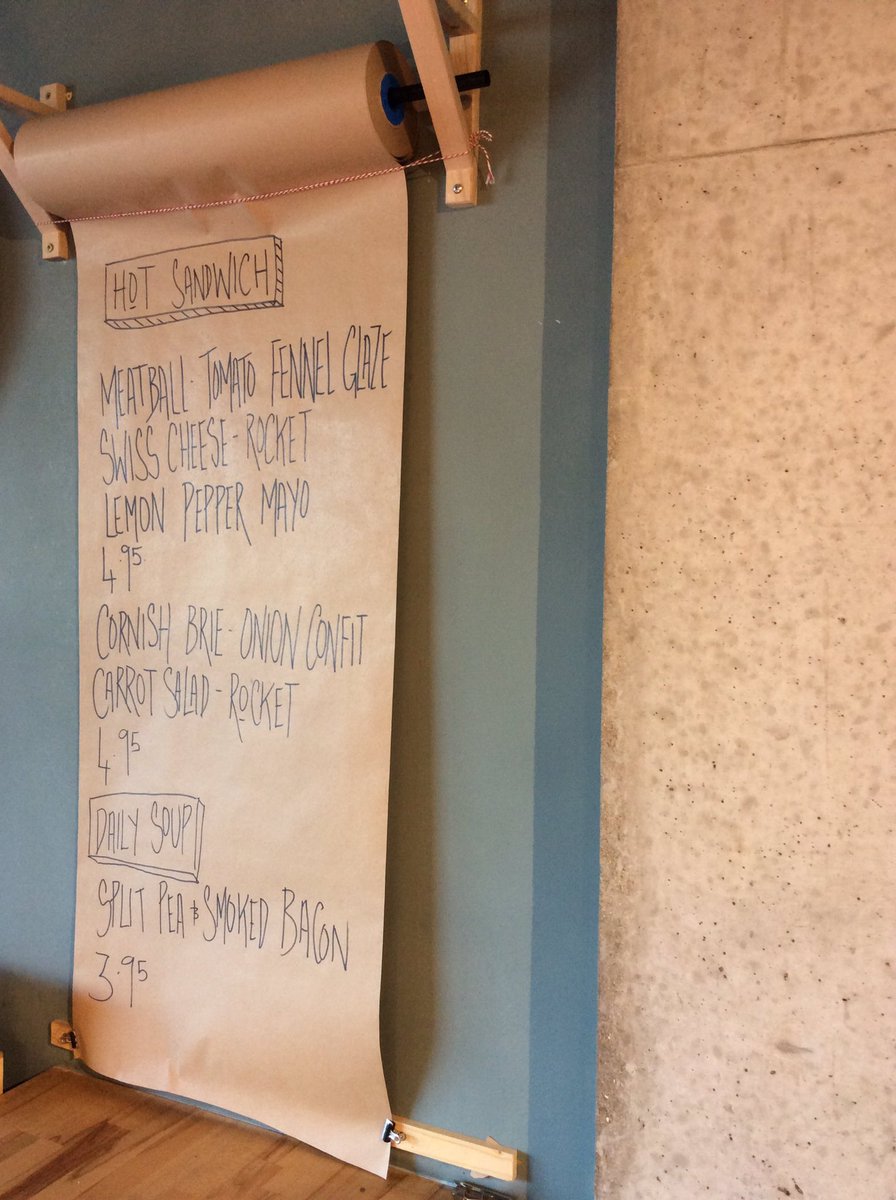 HOT SANDWICH
MEATBALL · TOMATO FENNEL GLAZE
SWISS CHEESE - ROCKET
LEMON PEPPER MAYO
4.95
CORNISH BRIE - ONION CONFIT
CARROT SALAD - ROCKET
4.95
DAILY SOUP
SPLIT PEA & SMOKED BACON
3.95